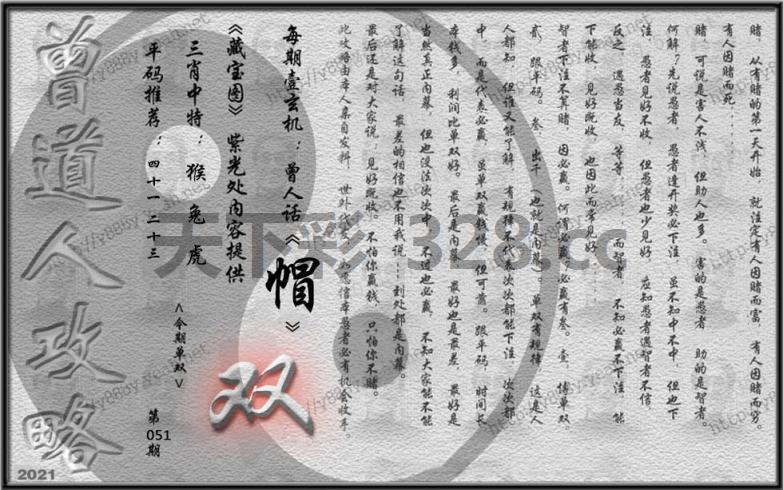 赌，从有赌的第一天开始，就注定有人因赌而富，有人因赌而穷。
有人因赌而死......
赌，可说是害人不浅，但助人也多。害的是愚者，助的是智者。
何解？先说愚者，愚者逢开奖必下注，虽不知中不中，但也下
注，愚者见好不收，但愚者也少见好，应知愚者遇智者不信，
反之，遇愚当友，等等......而智者，不知必赢不下注，能
下能收，见好既收，也因此而常见好......
智者下注不算赌，因必赢。何谓必赢？必赢有叁。壹，博单双
贰，跟平码。叁，出千（也就是内幕）。单双有规律，这是人
人都知，但谁又能了解，有规律不代表次次都能下注，次次都
中，而是代表必赢，虽单双赢钱慢，但可靠。跟平码，时间长
本钱多，利润比单双好。最后是内幕，最好也是最差，最好是
当然真正内幕，但也没法次次中，不过也必赢，不知大家能不能
了解这句话，最差的相信也不用我说......到处都是内幕。
最后还是对大家说，见好既收。不怕你赢钱，只怕你不赌。
此攻略由本人亲自发料，世外代
愚信本愚者必有机会收丰。
每期壹玄机：曾人话《帽》
《藏宝图》紫光处内容提供
三肖中特：猴 兔 虎
平码推荐：四十一 二十三
<今期单双>
双
第051期
曾道人攻略
2021
天下彩 328.cc